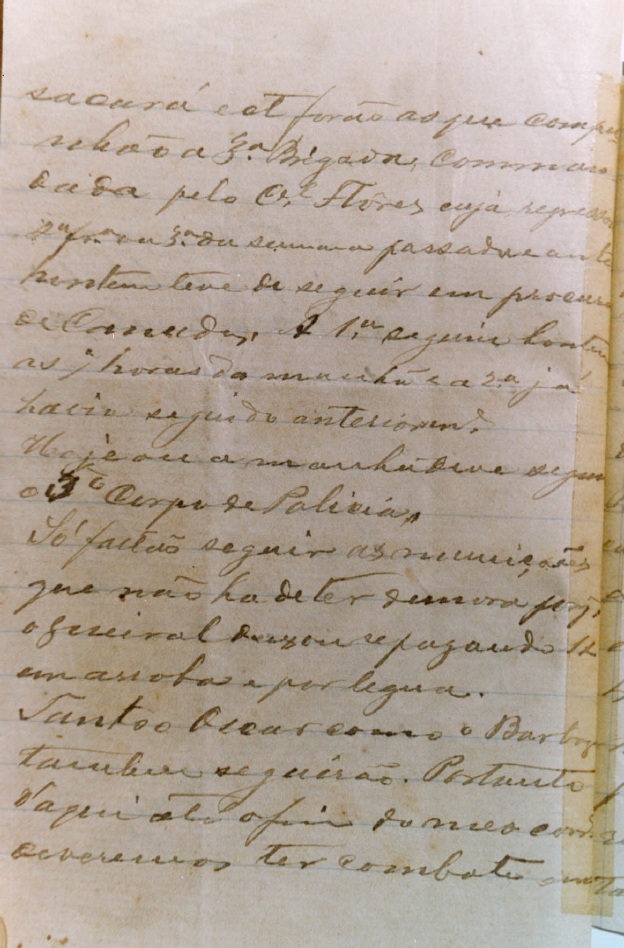 sacará e et forão as que compu
nhão a 3.ª Brigada, comman
dada pelo C.el Flores cuja
2.ª fr.ª ou 3.ª da semana passada e ante
hontem teve de seguir em procura
de Canudos. A 1.ª seguiu hontem
as 7 horas da manhã e a 2.ª já
havia seguido anteriorm.e
Hoje ou amanhã deve seguir
o 5.º Corpo de Policia,
Só faltão seguir as munições
que não ha de ter demora porq.
o Gueiral deixou se pagando 1$
em arroba e por legua.
Santos Oscar como o Barbosa
tambem seguirão. Portanto
d'aqui até o fim do mez corr.e
deveremos ter combate